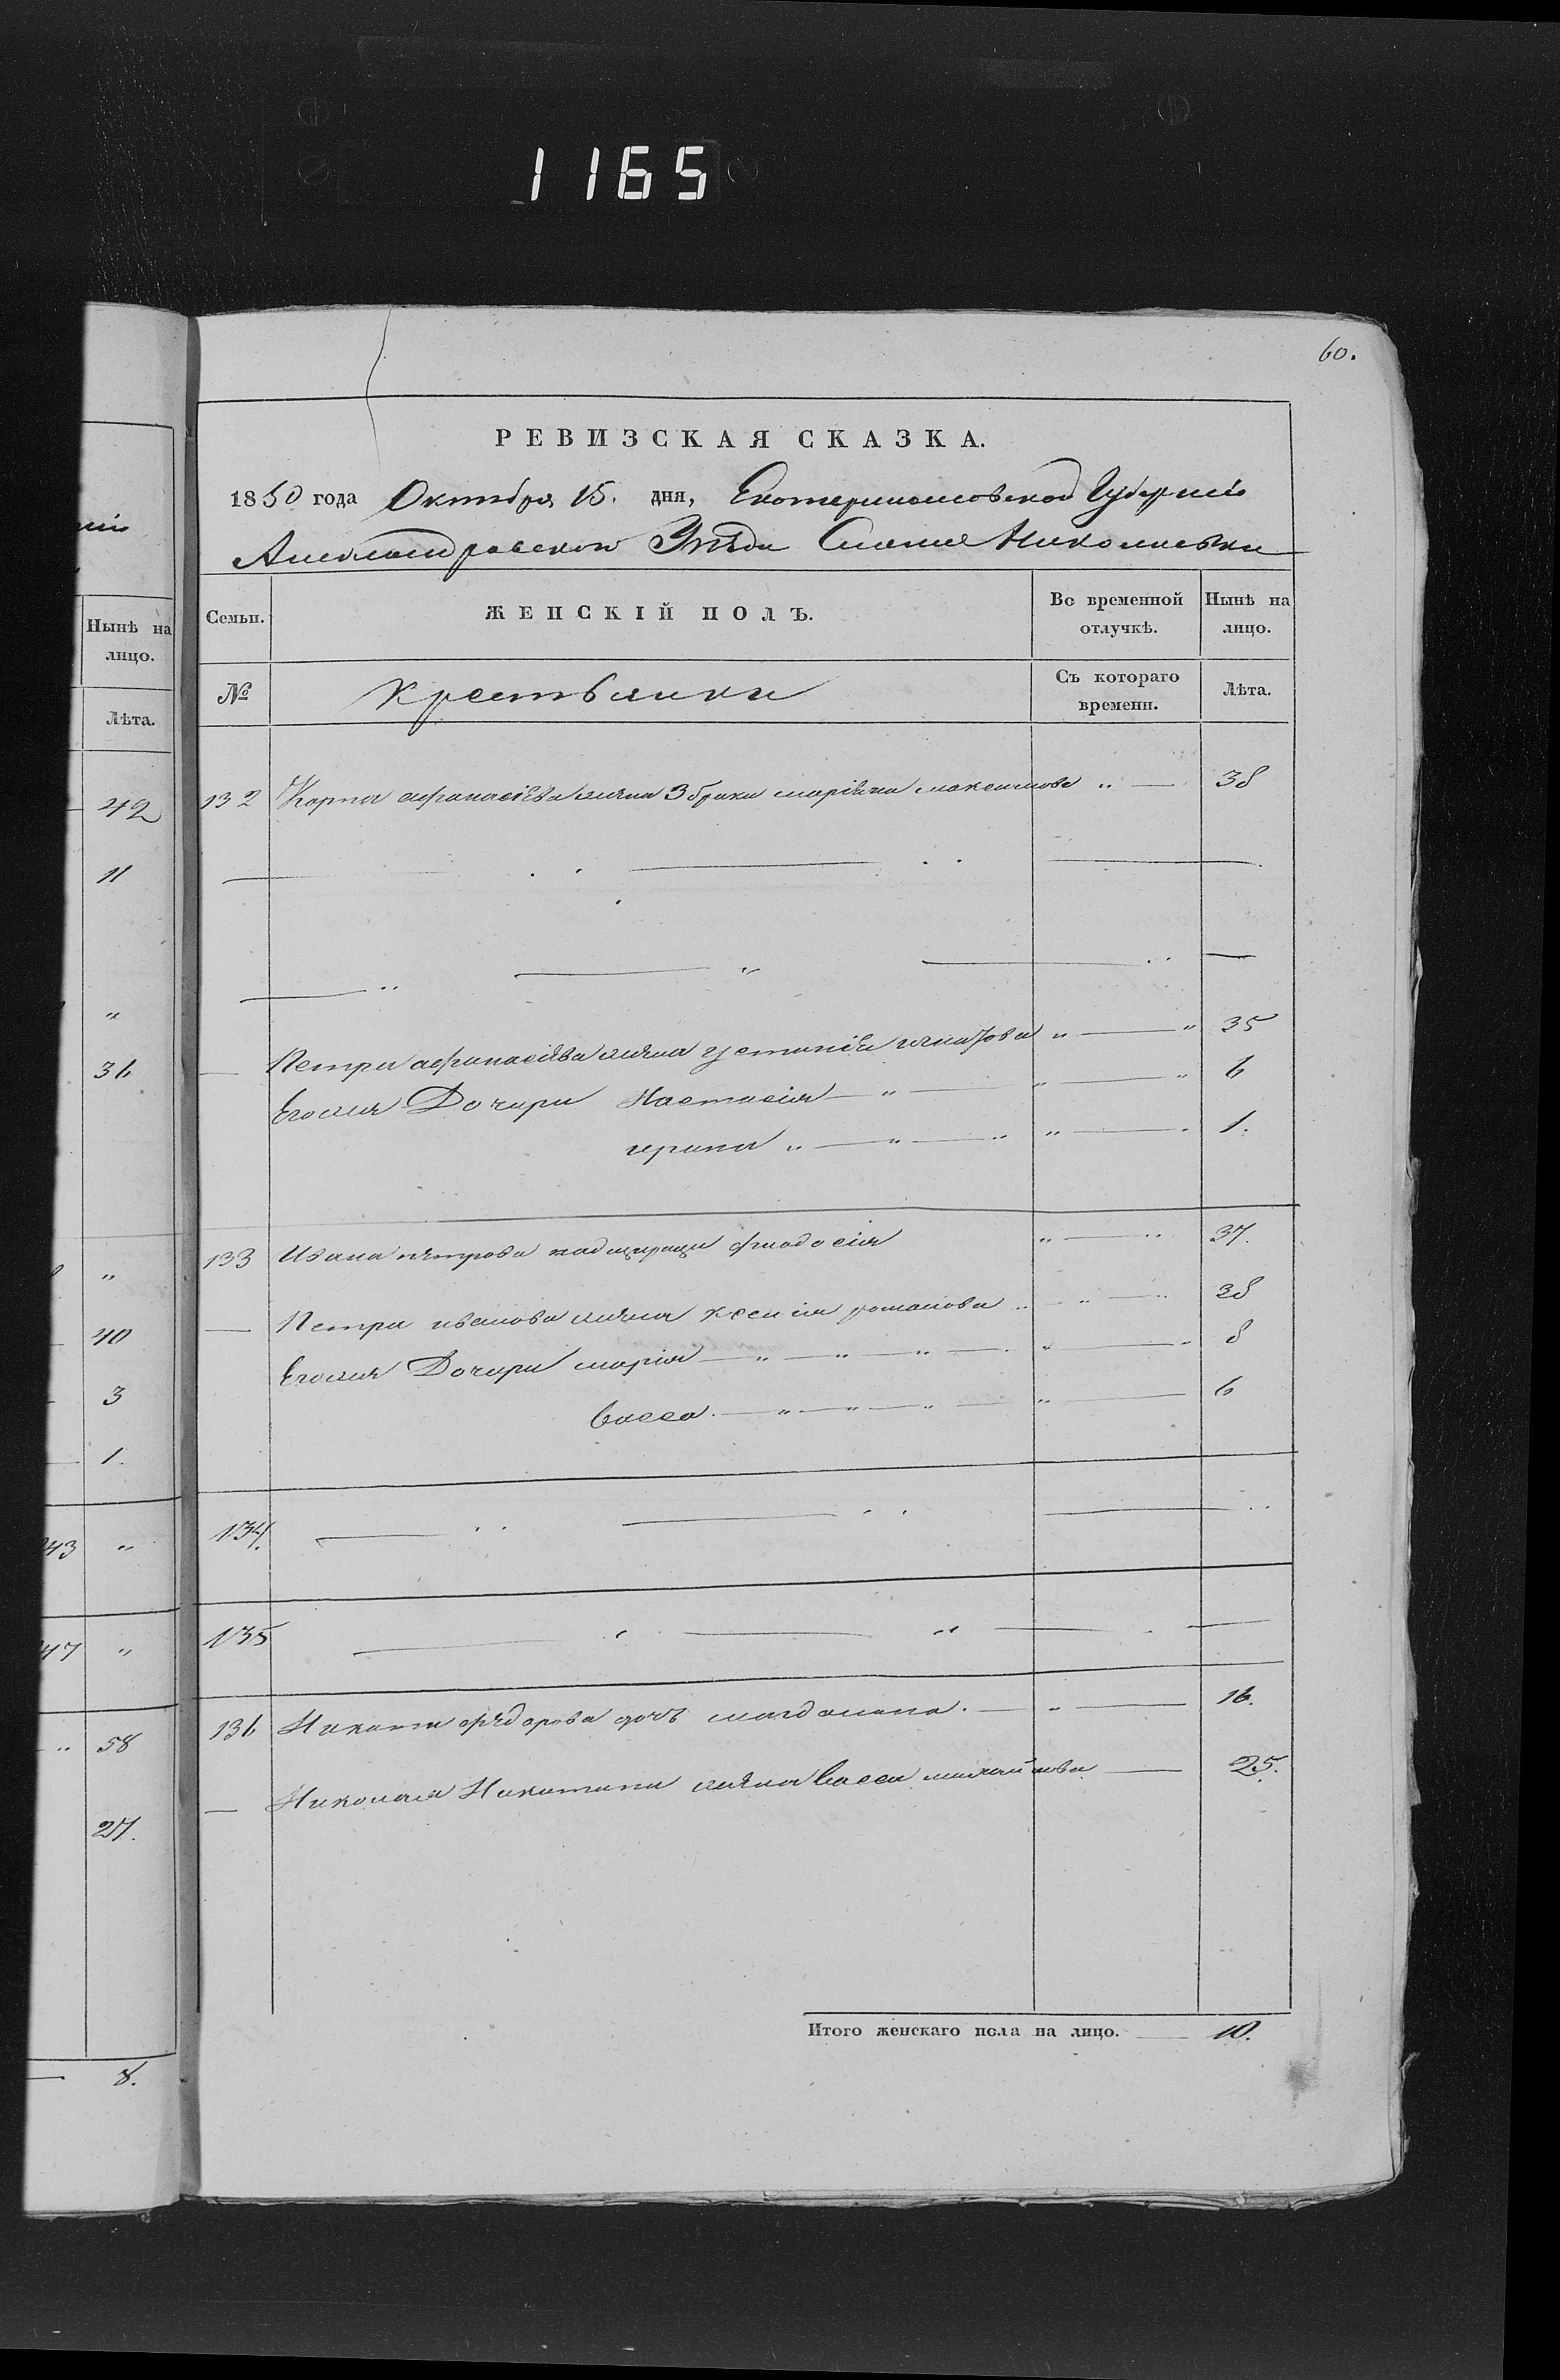 1165
60.
РЕВИЗСКАЯ СКАЗКА.
1850 года Октября 15. дня, Екатеринославской Губерніи
Александровского Уѣзда Имения Николаевки
Семьи.
ЖЕНСКІЙ ПОЛЪ.
Во временной отлучкѣ.
Нынѣ на лицо.
№
Крестьянки
Съ котораго времени.
Лѣта.
132 Карпа афанасіева жена 3 брака марiяна максимова " — 38
— Петра афанасіева жена устинiя игнатова " — " 35
Егожа Дочери Настасія — " — " — " 6
ирина " — " — " " — 1.
133 Ивана петрова падщерица феодосія " — " 37.
— Петра иванова жена ксенія романова " " — " 38
Егожа Дочери марія — " — " — " — " — 8
васса. — " — " — " — " — 6
134.
135
136 Никиты федорова дочь магдалина. — " — 16.
— Николая Никитина жена васса михайлова — 25.
Итого женскаго пола на лицо. — 10.
Нынѣ на лицо.
Лѣта.
42
11
"
36
"
40
3
1.
43 "
47 "
" 58
27.
8.